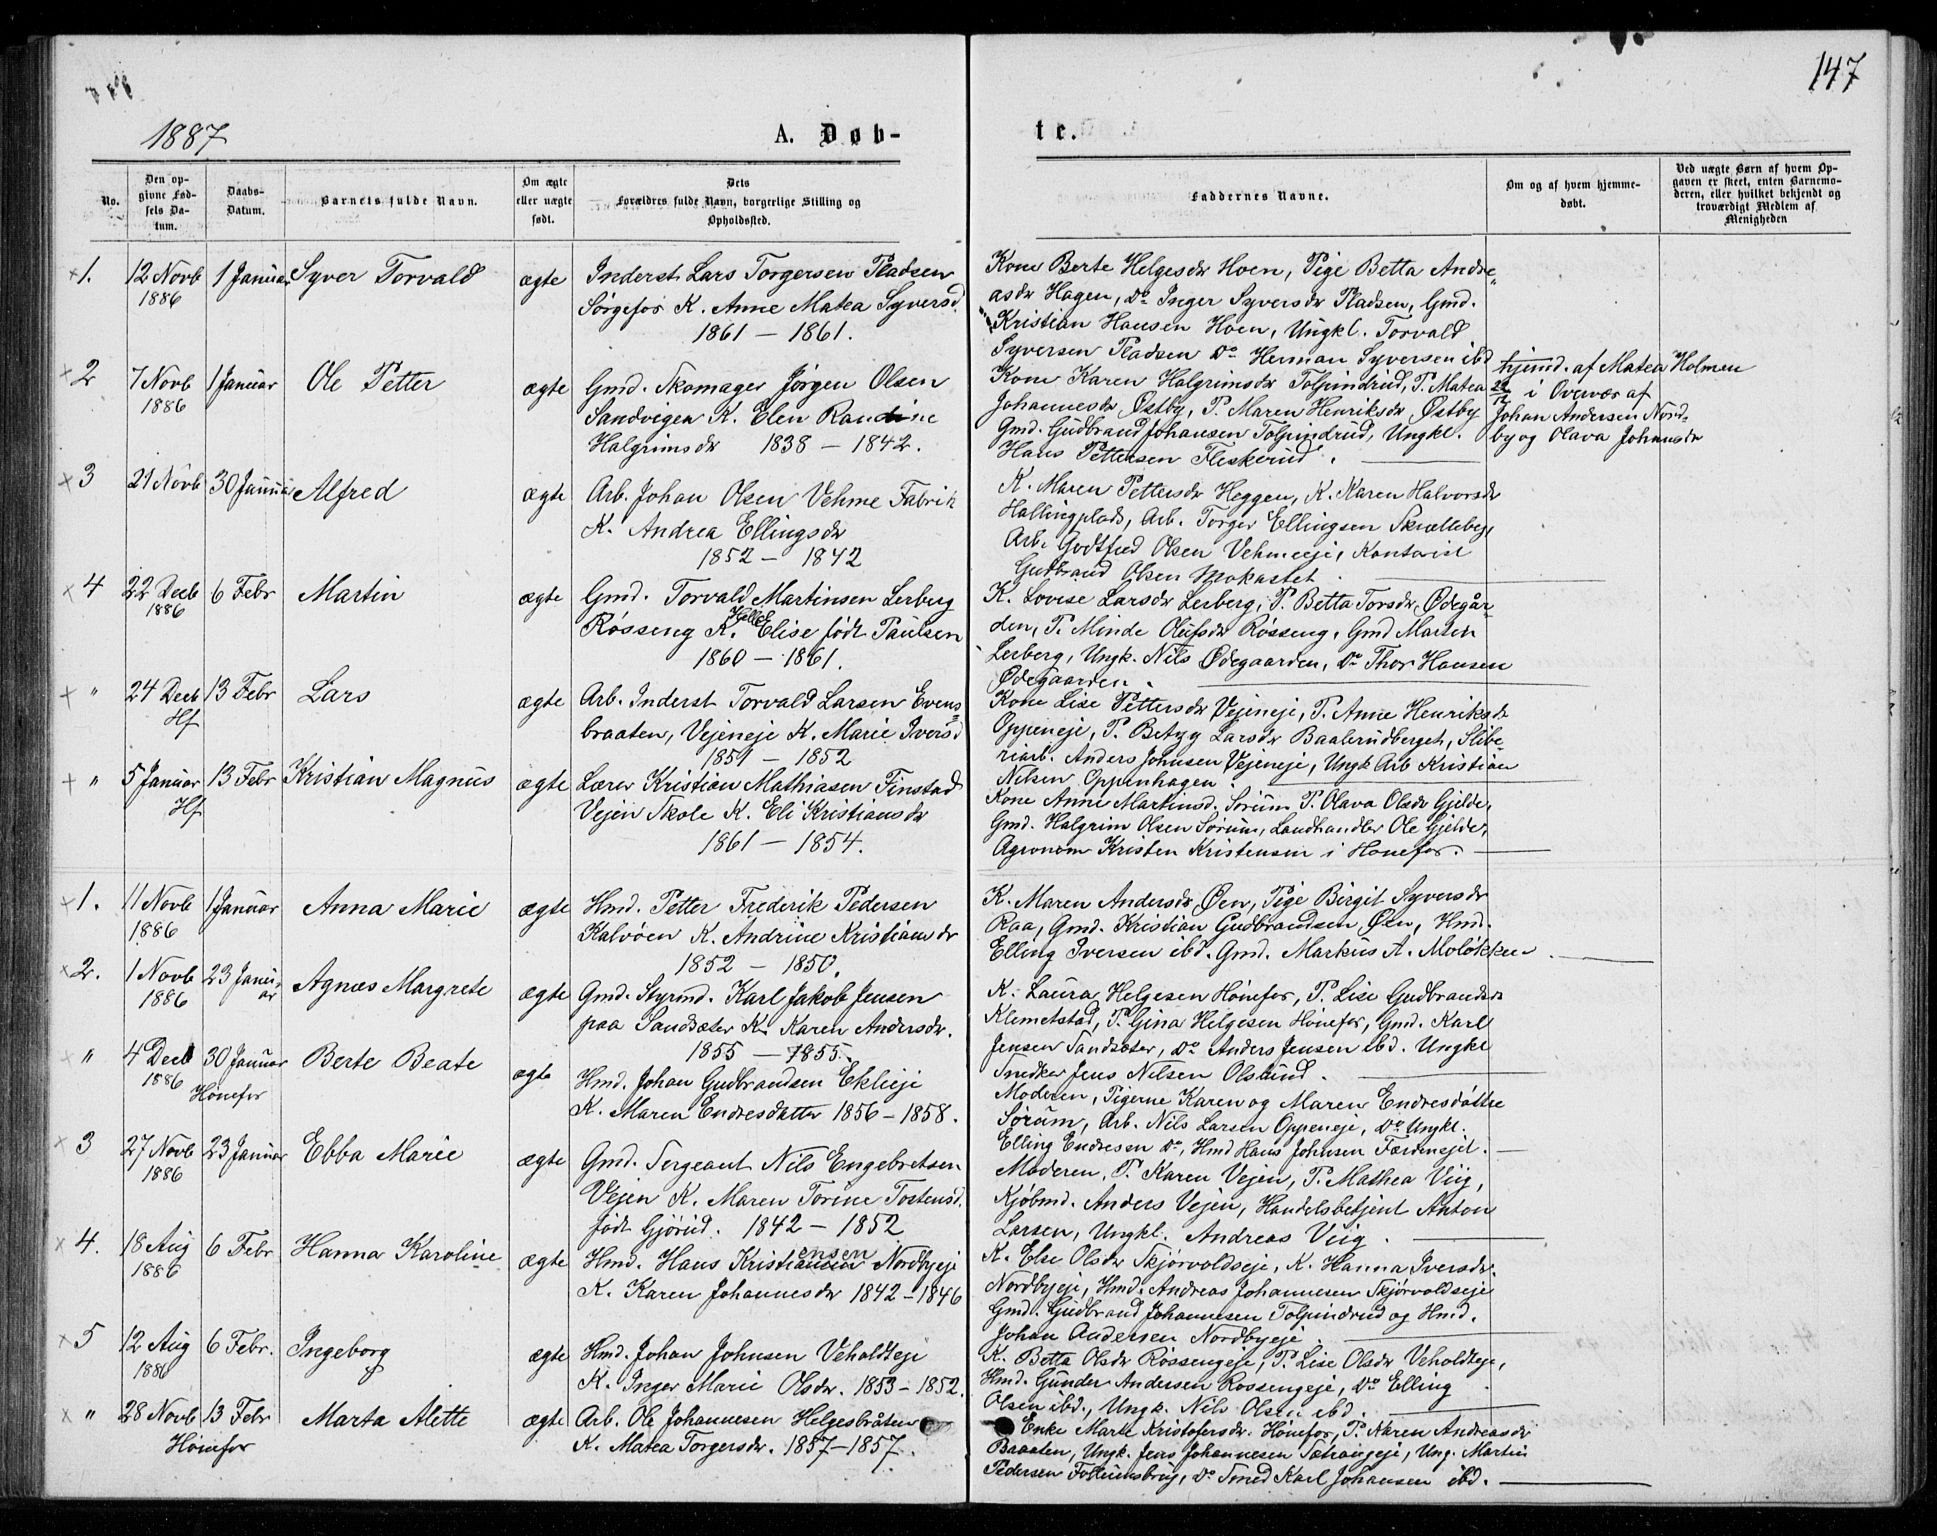 147
1887
A. Døb-
te.
No.
Den op-
givne Fød-
sels Da-
tum.
Daabs-
Datum.
Barnets fulde Navn.
Om ægte
eller uægte
født.
Dets
Forældres fulde Navn, borgerlige Stilling og
Opholdssted.
Faddernes Navne.
Om og af hvem hjemme-
døbt.
Ved uægte Børn af hvem Op-
gaven er skeet, enten Barnemo-
deren, eller hvilket bekjendt og
troværdigt Medlem af
Menigheden
1. 12 Novb 1 Januar Syver Torvald ægte Inderst Lars Torgersen Pladsen
1886
Sørgefos K. Anne Matea Syversd.
1861 – 1861.
Kone Berte Helgesdr Hoen, Pige Betta Andre
asdr Hagen, Do Inger Syversdr Pladsen, Gmd.
Kristian Hansen Hoen, Ungkl. Torvald
Syversen Pladsen Do Herman Syversen ibd
2 7 Novb 1 Januar Ole Petter ægte Gmd. Skomager Jørgen Olsen
1886
Sandvigen K. Elen Randine
Halgrimsdr 1838 – 1842.
Kone Karen Halgrimsdr Tolpindrud, P. Matea
Johannesdr Østby, P. Maren Henriksdr Østby
Gmd. Gudbrand Johansen Tolpindrud, Ungkl.
Hans Pettersen Fleskerud.
hjemd. af Matea Holmen
i Overvær af
Johan Andersen Nord-
by og Olava Johnsdr
3 21 Novb 30 Januar Alfred ægte Arb. Johan Olsen Vehme Fabrik
K. Andrea Ellingsdr
1852 – 1842
K. Maren Pettersdr Heggen, K. Karen Halvorsdr
Hallingplads, Arb. Torger Ellingsen
Arb. Godtfred Olsen Vehmeeje, Kontorist
Gudbrand Olsen Mokastet.
4 22 Decb 6 Febr Martin ægte Gmd. Torvald Martinsen Lerberg
1886
Røsseng K. Elise født Paulsen
1860 – 1861.
K. Lovise Larsdr Lerberg, P. Betta Torsdr Ødegår-
den, P. Minde Olufsdr Røsseng, Gmd Martin
Lerberg, Ungk. Nils Ødegaarden, Do Thor Hansen
Ødegaarden.
" 24 Decb 13 Febr Lars ægte Arb. Inderst Torvald Larsen Evens-
Hf
braaten, Vejeneje K. Marie Iversd
1851 – 1852
Kone Lise Pettersdr Vejeneje, P. Anne Henriksdr
Oppeneje, P. Betzy Larsdr Baalerudberget, Slibe-
riarb. Anders Johnsen Vejeneje, Ungk Arb Kristian
Nilsen Oppenhagen.
" 5 Januar 13 Febr Kristian Magnus ægte Lærer Kristian Mathiasen Finstad
Hf
Vejen Skole K. Eli Kristiansdr
1861 – 1854.
Kone Anne Martinsd. Sørum P. Olava Olsdr Gjelde,
Gmd. Halgrim Olsen Sørum, Landhandler Ole Gjelde,
Agronom Kristen Kristensen i Hønefos.
1. 11 Novb 1 Januar Anna Marie ægte Hmd. Petter Frederik Pedersen
1886
Kalvøen K. Andrine Kristiansdr
1852 – 1850.
K. Maren Andersdr Øen, Pige Birgit Syversdr
Raa, Gmd. Kristian Gudbrandsen Øen, Hmd.
Elling Iversen ibd. Gmd. Markus A. Moløkken
2. 1 Novb 23 Janu-
ar
1886
Agnæs Margrete ægte Gmd. Styrmd. Karl Jakob Jensen
paa Sandsæter K. Karen Andersdr.
1855 – 1855.
K. Laura Helgesen Hønefos, P. Lise Gudbrandsdr
Klemetstad, P. Gina Helgesen Hønefos, Gmd. Karl
Jensen Sandsæter, Do Anders Jensen ibd. Ungkl
Snedker Jens Nilsen Olslund.
" 4 Decb 30 Januar Berte Beate ægte Hmd. Johan Gudbrandsen Eklieje
1886 Hønefos
K. Maren Endresdatter 1856 – 1858.
Moderen, Pigerne Karen og Maren Endresdøttre
Sørum, Arb. Nils Larsen Oppeneje, Do Ungkl.
Elling Endresen Do, Hmd Hans Johnsen
3 27 Novb 23 Januar Ebba Marie ægte Gmd. Sergeant Nils Engebretsen
1886
Vejen K. Maren Torine Tostensd.
født Gjørud. 1842 – 1852
Moderen, P. Karen Vejen, P. Mathea Viig,
Kjøbmd. Anders Vejen, Handelsbetjent Anton
Larsen, Ungkl. Andreas Viig.
4. 18 Aug 6 Febr Hanna Karoline ægte Hmd. Hans Kristiansen Nordbyeje
1886
K. Karen Johannesdr 1842 – 1846
K. Else Olsdr Skjørvoldseje, K. Hanna Iversdr
Nordbyeje, Hmd. Andreas Johannesen Skjørvoldseje
Gmd. Gudbrand Johannesen Tolpindrud og Hmd.
Johan Andersen Nordbyeje.
5 12 Aug 6 Febr. Ingeborg ægte Hmd. Johan Johnsen Veholdteje
1886
K. Inger Marie Olsdr. 1853 – 1852.
K. Betta Olsdr Røssengeje, P. Lise Olsdr Veholdteje,
Hmd. Gunder Andersen Røssengeje, Do Elling
Olsen ibd., Ungk. Nils Olsen ibd.
" 28 Novb 13 Febr Marta Alette ægte Arb. Ole Johannesen Helgesbråten
Hønefos
K. Matea Torgersdr. 1857 – 1857.
Enke Marte Kristofersdr. Hønefos, P. Karen Andreasdr
Braaten, Ungk. Jens Johannesen Ung. Martin
Pedersen Do Smed Karl Johansen ibd.